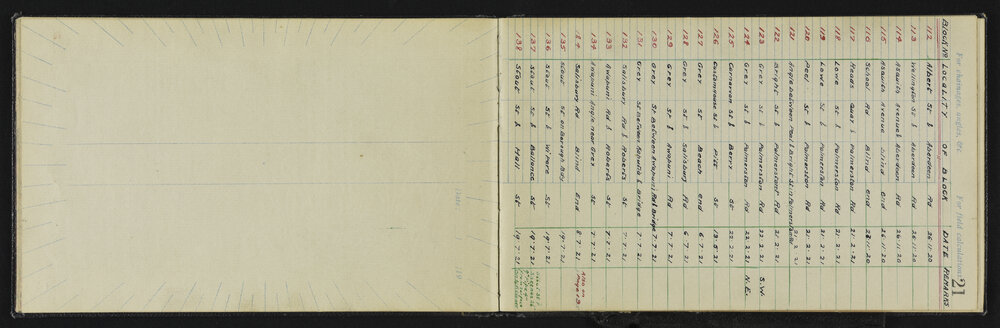 For chainages, angles, &c. For field calculations
21
Block No LOCALITY OF BLOCK DATE REMARKS
112 Albert St & Aberdeen Rd 26·11·20
113 Wellington St & Aberdeen 26·11·20
114 Asquith Avenue & Aberdeen 26·11·20
115 Asquith Avenue Blind End 26·11·20
116 School Rd Blind End 28·11·20
117 Heads Quay & Palmerston Rd 21·2·21
118 Lowe St & Palmerston Rd 21·2·21
119 Lowe St & Palmerston Rd 21·2·21
120 Peel St & Palmerston Rd 21·2·21
121 Angle between Peel & Bright St in Palmerston Rd 21·2·21
122 Bright St & Palmerston Rd 21·2·21
123 Grey St & Palmerston Rd 22·2·21 S.W.
124 Grey St & Palmerston Rd 22·2·21 N.E.
125 Carnarvon St & Berry St 22·2·21
126 Customhouse St & Pitt St 13·5·21
127 Grey St Beach End 6·7·21
128 Grey St & Salisbury Rd 6·7·21
129 Grey St & Awapuni Rd 7·7·21
130 Grey St. Between Awapuni Rd & Bridge 7·7·21
131 Grey St Between & Bridge 7·7·21
132 Salisbury Rd & Roberts St 7·7·21
133 Awapuni Rd & Roberts St 7·7·21
134 Awapuni Angle near Grey St 7·7·21
134 Salisbury Rd Blind End 8·7·21 Also on Page 23
135 Stout St on Borough Bdy 19·7·21
136 Stout St & Wi Pere St 19·7·21
137 Stout St & Ballance St 19·7·21
138 Stout St & Hall St 19·7·21
Date:
19